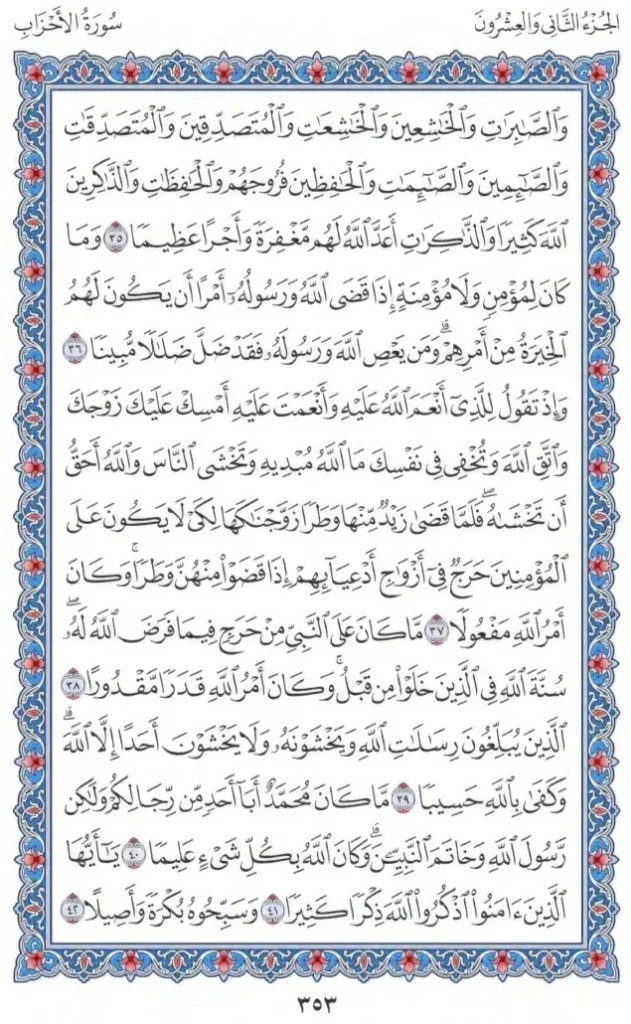 الجُزْءُ الثَّانِى وَالعِشْرُونَ
سُورَةُ الأَحْزَابِ
وَٱلصَّٰبِرَٰتِ وَٱلْخَٰشِعِينَ وَٱلْخَٰشِعَٰتِ وَٱلْمُتَصَدِّقِينَ وَٱلْمُتَصَدِّقَٰتِ
وَٱلصَّٰٓئِمِينَ وَٱلصَّٰٓئِمَٰتِ وَٱلْحَٰفِظِينَ فُرُوجَهُمْ وَٱلْحَٰفِظَٰتِ وَٱلذَّٰكِرِينَ
ٱللَّهَ كَثِيرًا وَٱلذَّٰكِرَٰتِ أَعَدَّ ٱللَّهُ لَهُم مَّغْفِرَةً وَأَجْرًا عَظِيمًا ٣٥ وَمَا
كَانَ لِمُؤْمِنٍ وَلَا مُؤْمِنَةٍ إِذَا قَضَى ٱللَّهُ وَرَسُولُهُۥٓ أَمْرًا أَن يَكُونَ لَهُمُ
ٱلْخِيَرَةُ مِنْ أَمْرِهِمْ ۗ وَمَن يَعْصِ ٱللَّهَ وَرَسُولَهُۥ فَقَدْ ضَلَّ ضَلَٰلًا مُّبِينًا ٣٦
وَإِذْ تَقُولُ لِلَّذِىٓ أَنْعَمَ ٱللَّهُ عَلَيْهِ وَأَنْعَمْتَ عَلَيْهِ أَمْسِكْ عَلَيْكَ زَوْجَكَ
وَٱتَّقِ ٱللَّهَ وَتُخْفِى فِى نَفْسِكَ مَا ٱللَّهُ مُبْدِيهِ وَتَخْشَى ٱلنَّاسَ وَٱللَّهُ أَحَقُّ
أَن تَخْشَىٰهُ ۖ فَلَمَّا قَضَىٰ زَيْدٌ مِّنْهَا وَطَرًا زَوَّجْنَٰكَهَا لِكَىْ لَا يَكُونَ عَلَى
ٱلْمُؤْمِنِينَ حَرَجٌ فِىٓ أَزْوَٰجِ أَدْعِيَآئِهِمْ إِذَا قَضَوْا۟ مِنْهُنَّ وَطَرًا ۚ وَكَانَ
أَمْرُ ٱللَّهِ مَفْعُولًا ٣٧ مَّا كَانَ عَلَى ٱلنَّبِىِّ مِنْ حَرَجٍ فِيمَا فَرَضَ ٱللَّهُ لَهُۥ ۖ
سُنَّةَ ٱللَّهِ فِى ٱلَّذِينَ خَلَوْا۟ مِن قَبْلُ ۚ وَكَانَ أَمْرُ ٱللَّهِ قَدَرًا مَّقْدُورًا ٣٨
ٱلَّذِينَ يُبَلِّغُونَ رِسَٰلَٰتِ ٱللَّهِ وَيَخْشَوْنَهُۥ وَلَا يَخْشَوْنَ أَحَدًا إِلَّا ٱللَّهَ ۗ
وَكَفَىٰ بِٱللَّهِ حَسِيبًا ٣٩ مَّا كَانَ مُحَمَّدٌ أَبَآ أَحَدٍ مِّن رِّجَالِكُمْ وَلَٰكِن
رَّسُولَ ٱللَّهِ وَخَاتَمَ ٱلنَّبِيِّـۧنَ ۗ وَكَانَ ٱللَّهُ بِكُلِّ شَىْءٍ عَلِيمًا ٤٠ يَٰٓأَيُّهَا
ٱلَّذِينَ ءَامَنُوا۟ ٱذْكُرُوا۟ ٱللَّهَ ذِكْرًا كَثِيرًا ٤١ وَسَبِّحُوهُ بُكْرَةً وَأَصِيلًا ٤٢
٣٥٣